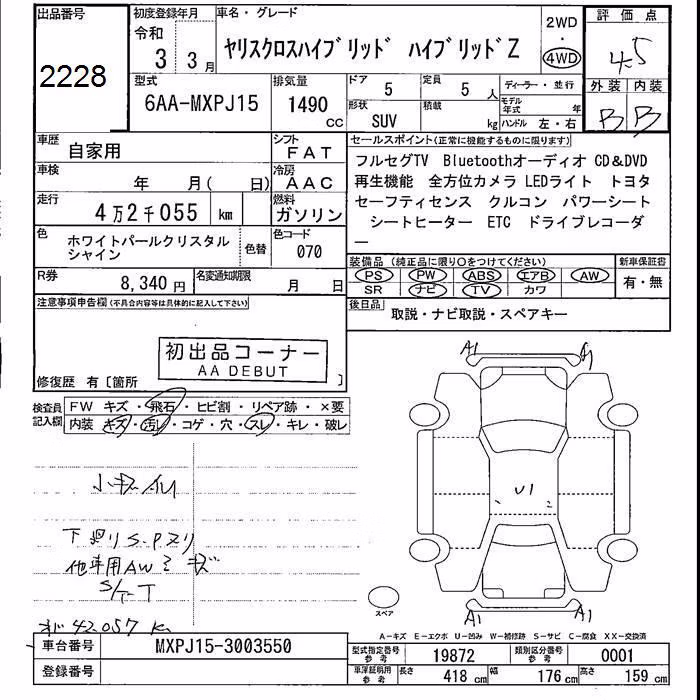 出品番号
2228
初度登録年月
令和
3年 3月
車名・グレード
ヤリスクロスハイブリッド ハイブリッドZ
2WD
・
4WD
評価点
4.5
外装 内装
B B
型式
6AA-MXPJ15
排気量
1490
cc
ドア
5
形状
SUV
定員
5 人
積載
kg
ディーラー・並行
モデル年式 年
ハンドル 左・右
車歴
自家用
シフト
FAT
車検
年 月( 日)
冷房
AAC
走行
4万2千055 km
燃料
ガソリン
色
ホワイトパールクリスタル
シャイン
色替
色コード
070
R券
8,340 円
名変通知期限
月 日
セールスポイント(正常に機能するものに限ります)
フルセグTV Bluetoothオーディオ CD&DVD
再生機能 全方位カメラ LEDライト トヨタ
セーフティセンス クルコン パワーシート
シートヒーター ETC ドライブレコーダ
ー
装備品(純正品に限り○をつけてください)
PS PW ABS エアB AW
SR ナビ TV カワ
新車保証書
有・無
後日品
取説・ナビ取説・スペアキー
注意事項申告欄(不具合内容等は具体的に記入して下さい)
初出品コーナー
AA DEBUT
修復歴 有〔箇所 〕
検査員
記入欄
FW キズ・飛石・ヒビ割・リペア跡・×要
内装 キズ・汚レ・コゲ・穴・スレ・キレ・破レ
小キズ
下廻りS・Pズリ
他車用AWミキズ
S/T-T
42,057 K
A1 A1
U1
A1 A1
スペア
A－キズ E－エクボ U－凹み W－補修跡 S－サビ C－腐食 XX－交換済
車台番号
MXPJ15-3003550
登録番号
型式指定番号
参考
19872
類別区分番号
参考
0001
車検証明用
参考
長さ 418 cm 幅 176 cm 高さ 159 cm